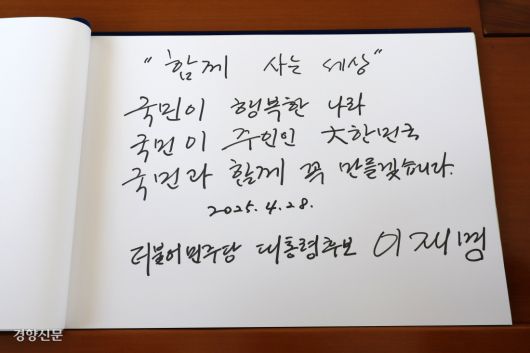 "함께 사는 세상"
국민이 행복한 나라
국민이 주인인 大한민국
국민과 함께 꼭 만들겠습니다.
2025. 4. 28.
더불어민주당 대통령후보 이재명
경향신문